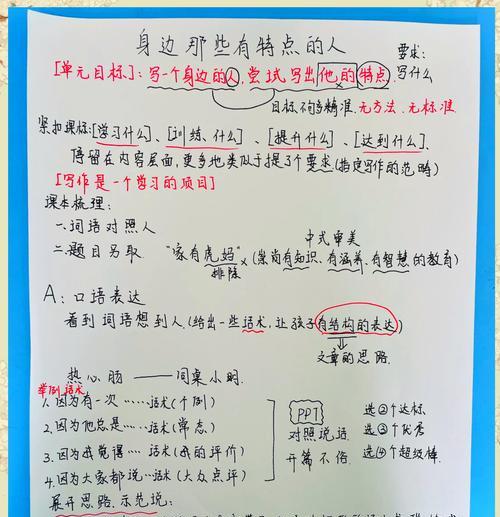 身边那些有特点的人
要求:
[单元目标]:写一个身边的人,尝试写出他的特点 写什么
目标不够精准.无方法.无标准
紧扣课标:[学习什么]、[训练什么]、[提升什么]、[达到什么]
停留在内容层面,更多地类似于提了个要求(指定写作的范畴)
[写作是一个学习的项目]
课本梳理:
一.词语对照人
中式审美
二.题目另取 "家有虎妈"×(崇尚有知识、有涵养、有智慧的教育)
排除
A:口语表达
看到词语想到人.(给出一些话术,让孩子有结构的表达)
文章的思路
热心肠——同桌小明.
举例话术
1.因为有一次……话术(个例)
2.因为他总是……话术(常态)
3.因为我觉得……话术(我的评价)
4.因为大家都说……话术(大众点评)
PPT
对照说话
开篇不俗
选②个达标
选③个优秀
选④个超级棒
展开思路.示范说: